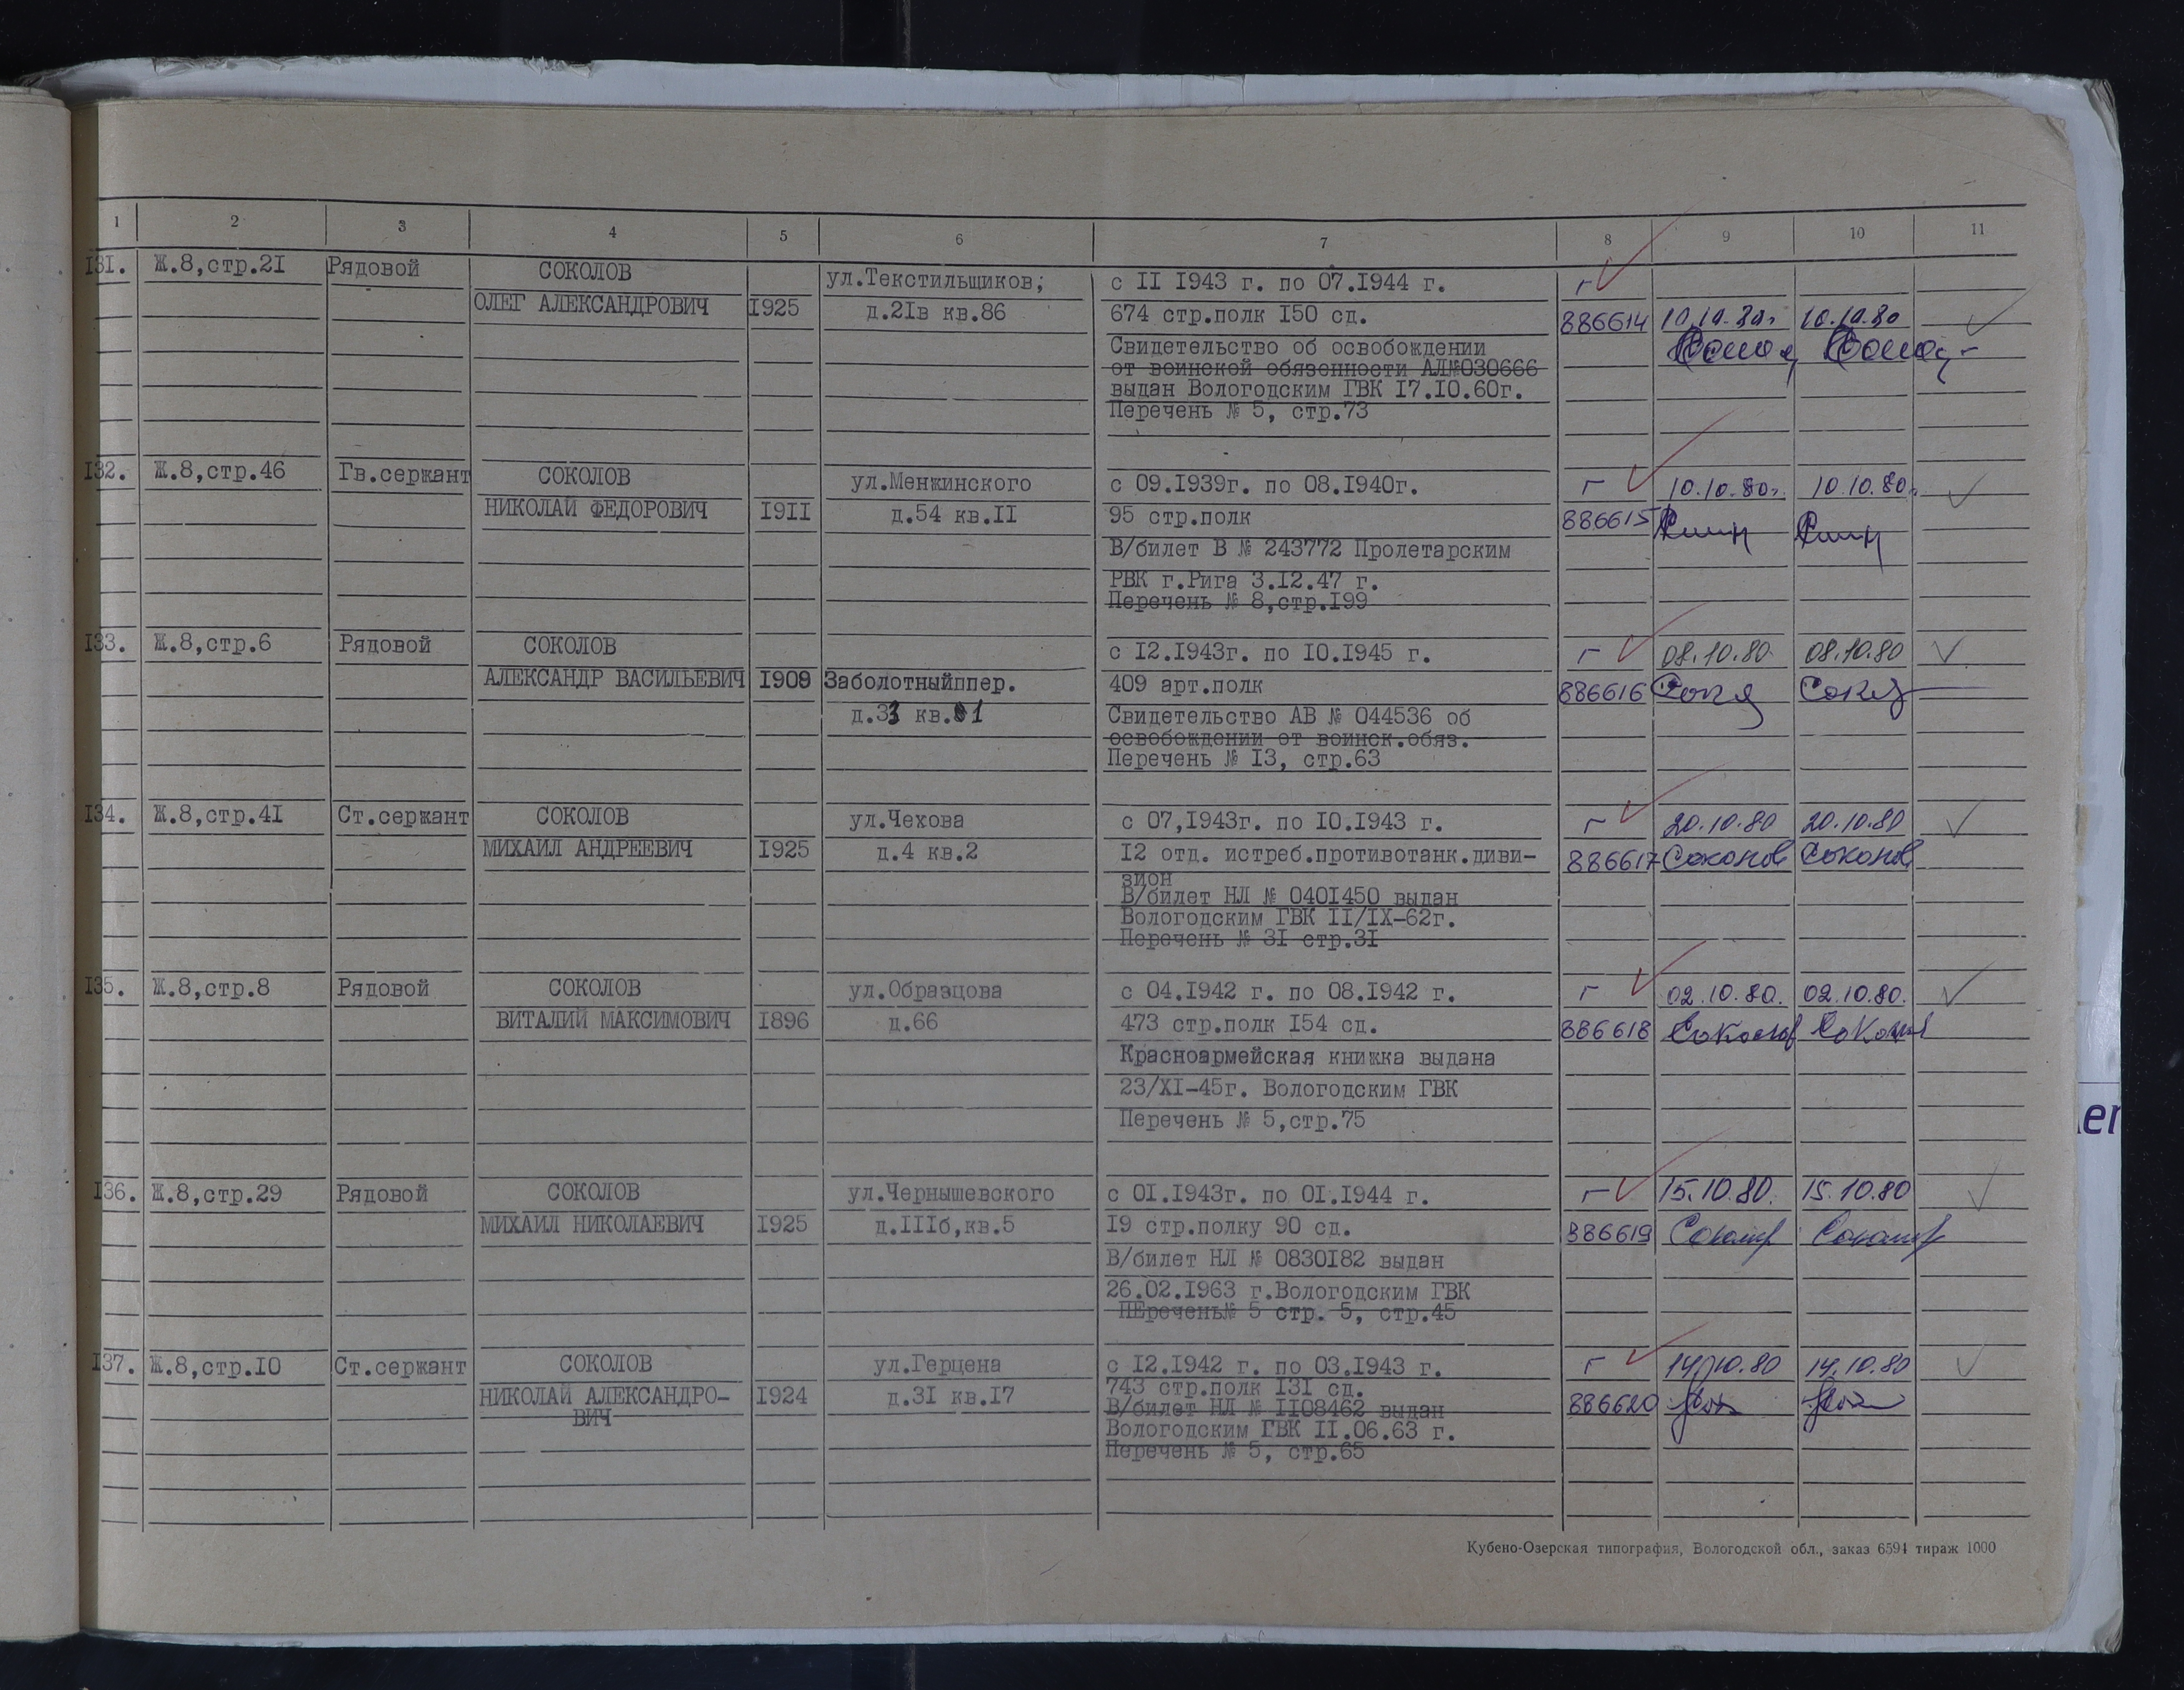 1 2 3 4 5 6 7 8 9 10 11
I3I. Ж.8,стр.2I Рядовой СОКОЛОВ ул.Текстильщиков; с II I943 г. по 07.I944 г. г
ОЛЕГ АЛЕКСАНДРОВИЧ I925 д.2Iв кв.86 674 стр.полк I50 сд. 886614 10.10.80г. 10.10.80
Свидетельство об освобождении
от воинской обязенности АЛ№030666
выдан Вологодским ГВК I7.I0.60г.
Перечень № 5, стр.73
I32. Ж.8,стр.46 Гв.сержант СОКОЛОВ ул.Менжинского с 09.I939г. по 08.I940г. г 10.10.80г. 10.10.80г.
НИКОЛАЙ ФЕДОРОВИЧ I9II д.54 кв.II 95 стр.полк 886615
В/билет В № 243772 Пролетарским
РВК г.Рига 3.I2.47 г.
Перечень № 8,стр.I99
I33. Ж.8,стр.6 Рядовой СОКОЛОВ с I2.I943г. по I0.I945 г. г 08.10.80 08.10.80
АЛЕКСАНДР ВАСИЛЬЕВИЧ I909 Заболотныйппер. 409 арт.полк 886616
д.33 кв.1 Свидетельство АВ № 044536 об
освобождении от воинск.обяз.
Перечень № I3, стр.63
I34. Ж.8,стр.4I Ст.сержант СОКОЛОВ ул.Чехова с 07,I943г. по I0.I943 г. г 20.10.80 20.10.80
МИХАИЛ АНДРЕЕВИЧ I925 д.4 кв.2 I2 отд. истреб.противотанк.диви- 886617 Соколов Соколов
зион
В/билет НЛ № 040I450 выдан
Вологодским ГВК II/IX-62г.
Перечень № 3I стр.3I
I35. Ж.8,стр.8 Рядовой СОКОЛОВ ул.Образцова с 04.I942 г. по 08.I942 г. г 02.10.80. 02.10.80.
ВИТАЛИЙ МАКСИМОВИЧ I896 д.66 473 стр.полк I54 сд. 886618 Соколов Соколов
Красноармейская книжка выдана
23/XI-45г. Вологодским ГВК
Перечень № 5,стр.75
I36. Ж.8,стр.29 Рядовой СОКОЛОВ ул.Чернышевского с 0I.I943г. по 0I.I944 г. г 15.10.80. 15.10.80
МИХАИЛ НИКОЛАЕВИЧ I925 д.IIIб,кв.5 I9 стр.полку 90 сд. 886619
В/билет НЛ № 0830I82 выдан
26.02.I963 г.Вологодским ГВК
ПЕречень№ 5 стр. 5, стр.45
I37. Ж.8,стр.I0 Ст.сержант СОКОЛОВ ул.Герцена с I2.I942 г. по 03.I943 г. г 14.10.80 14.10.80
НИКОЛАЙ АЛЕКСАНДРО- I924 д.3I кв.I7 743 стр.полк I3I сд. 886620
ВИЧ В/билет НЛ № II08462 выдан
Вологодским ГВК II.06.63 г.
Перечень № 5, стр.65
Кубено-Озерская типография, Вологодской обл., заказ 6594 тираж 1000